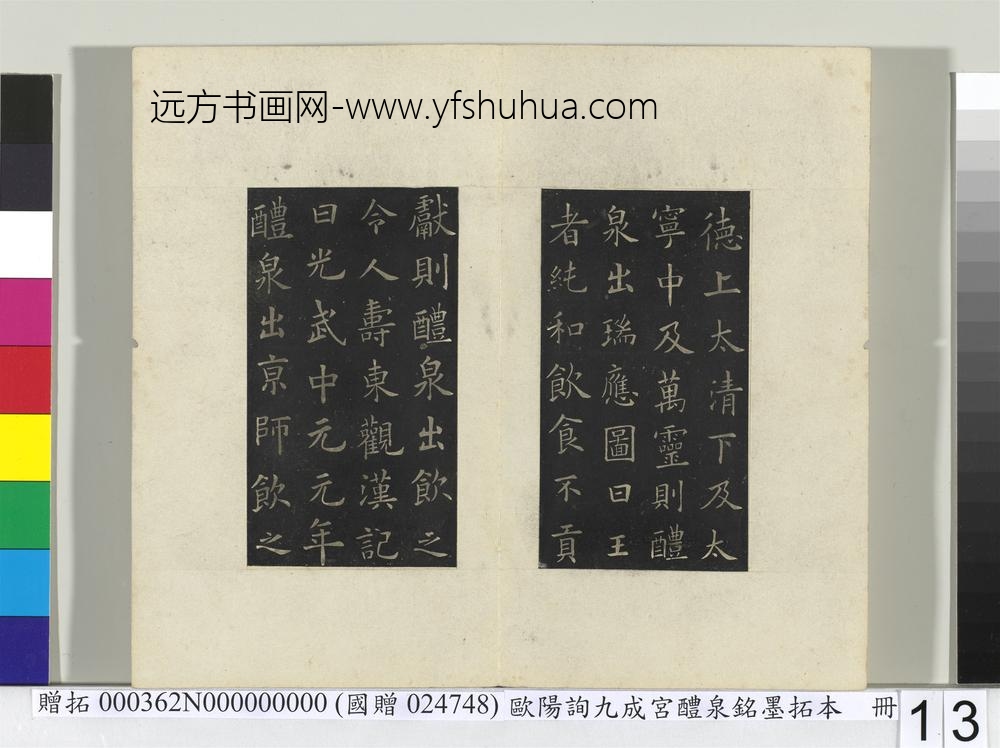 远方书画网-www.yfshuhua.com
德上太清下及太
寧中及萬靈則醴
泉出瑞應圖曰王
者純和飲食不貢
獻則醴泉出飲之
令人壽東觀漢記
曰光武中元元年
醴泉出京師飲之
贈拓 000362N000000000 (國贈 024748) 歐陽詢九成宮醴泉銘墨拓本 冊
13